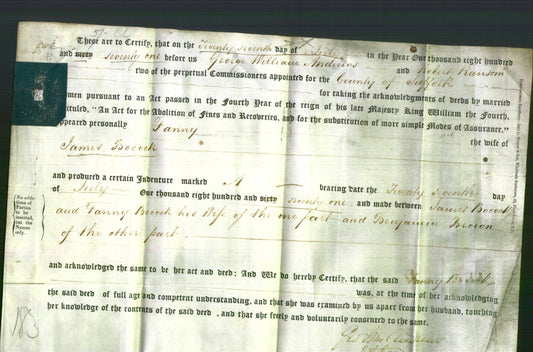 57-62
These are to Certify, that on the Twenty seventh day of July in the Year One thousand eight hundred
and sixty seventy one before us George William Andrews and Robert Ransom
two of the perpetual Commissioners appointed for the County of Suffolk
for taking the acknowledgments of deeds by married
omen pursuant to an Act passed in the Fourth Year of the reign of his late Majesty King William the Fourth,
tituled, "An Act for the Abolition of Fines and Recoveries, and for the substitution of more simple Modes of Assurance,"
ppeared personally Fanny the wife of
James Bocock
and produced a certain Indenture marked A bearing date the Twenty seventh day
of July One thousand eight hundred and sixty seventy one and made between James Bocock
and Fanny Bocock his Wife of the one part and Benjamin Brown
of the other part
(No additions of Parties to be inserted, but the Names only.
and acknowledged the same to be her act and deed: And We do hereby Certify, that the said Fanny Bocock
was, at the time of her acknowledging
the said deed of full age and competent understanding, and that she was examined by us apart from her husband, touching
her knowledge of the contents of the said deed, and that she freely and voluntarily consented to the same.
183
Geo Wm Andrews